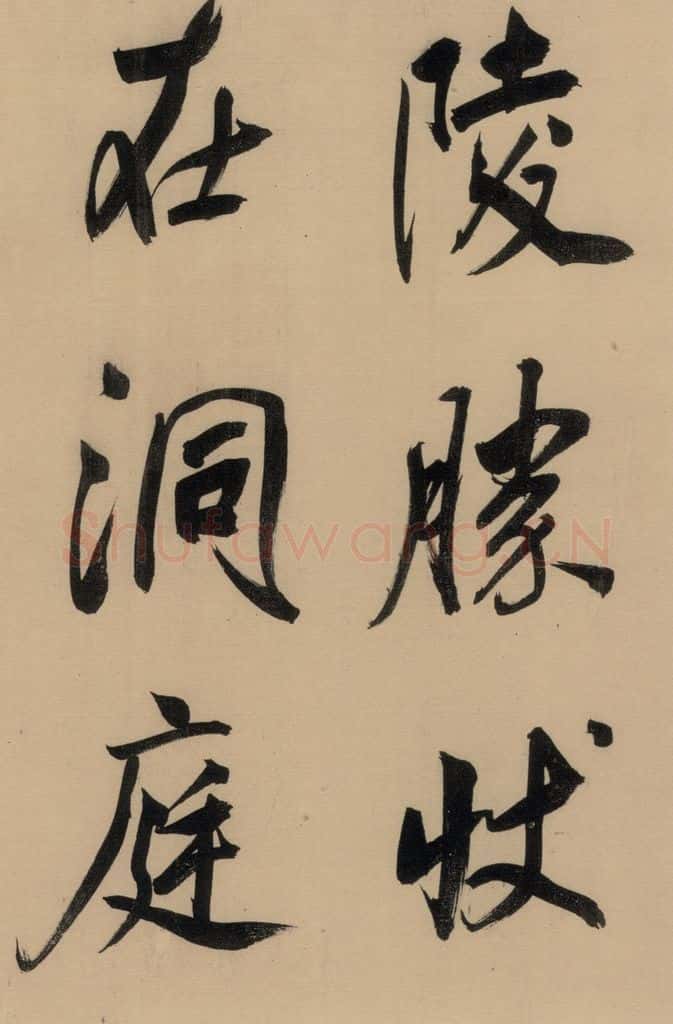 陵勝狀
在洞庭
Shufawang.CN